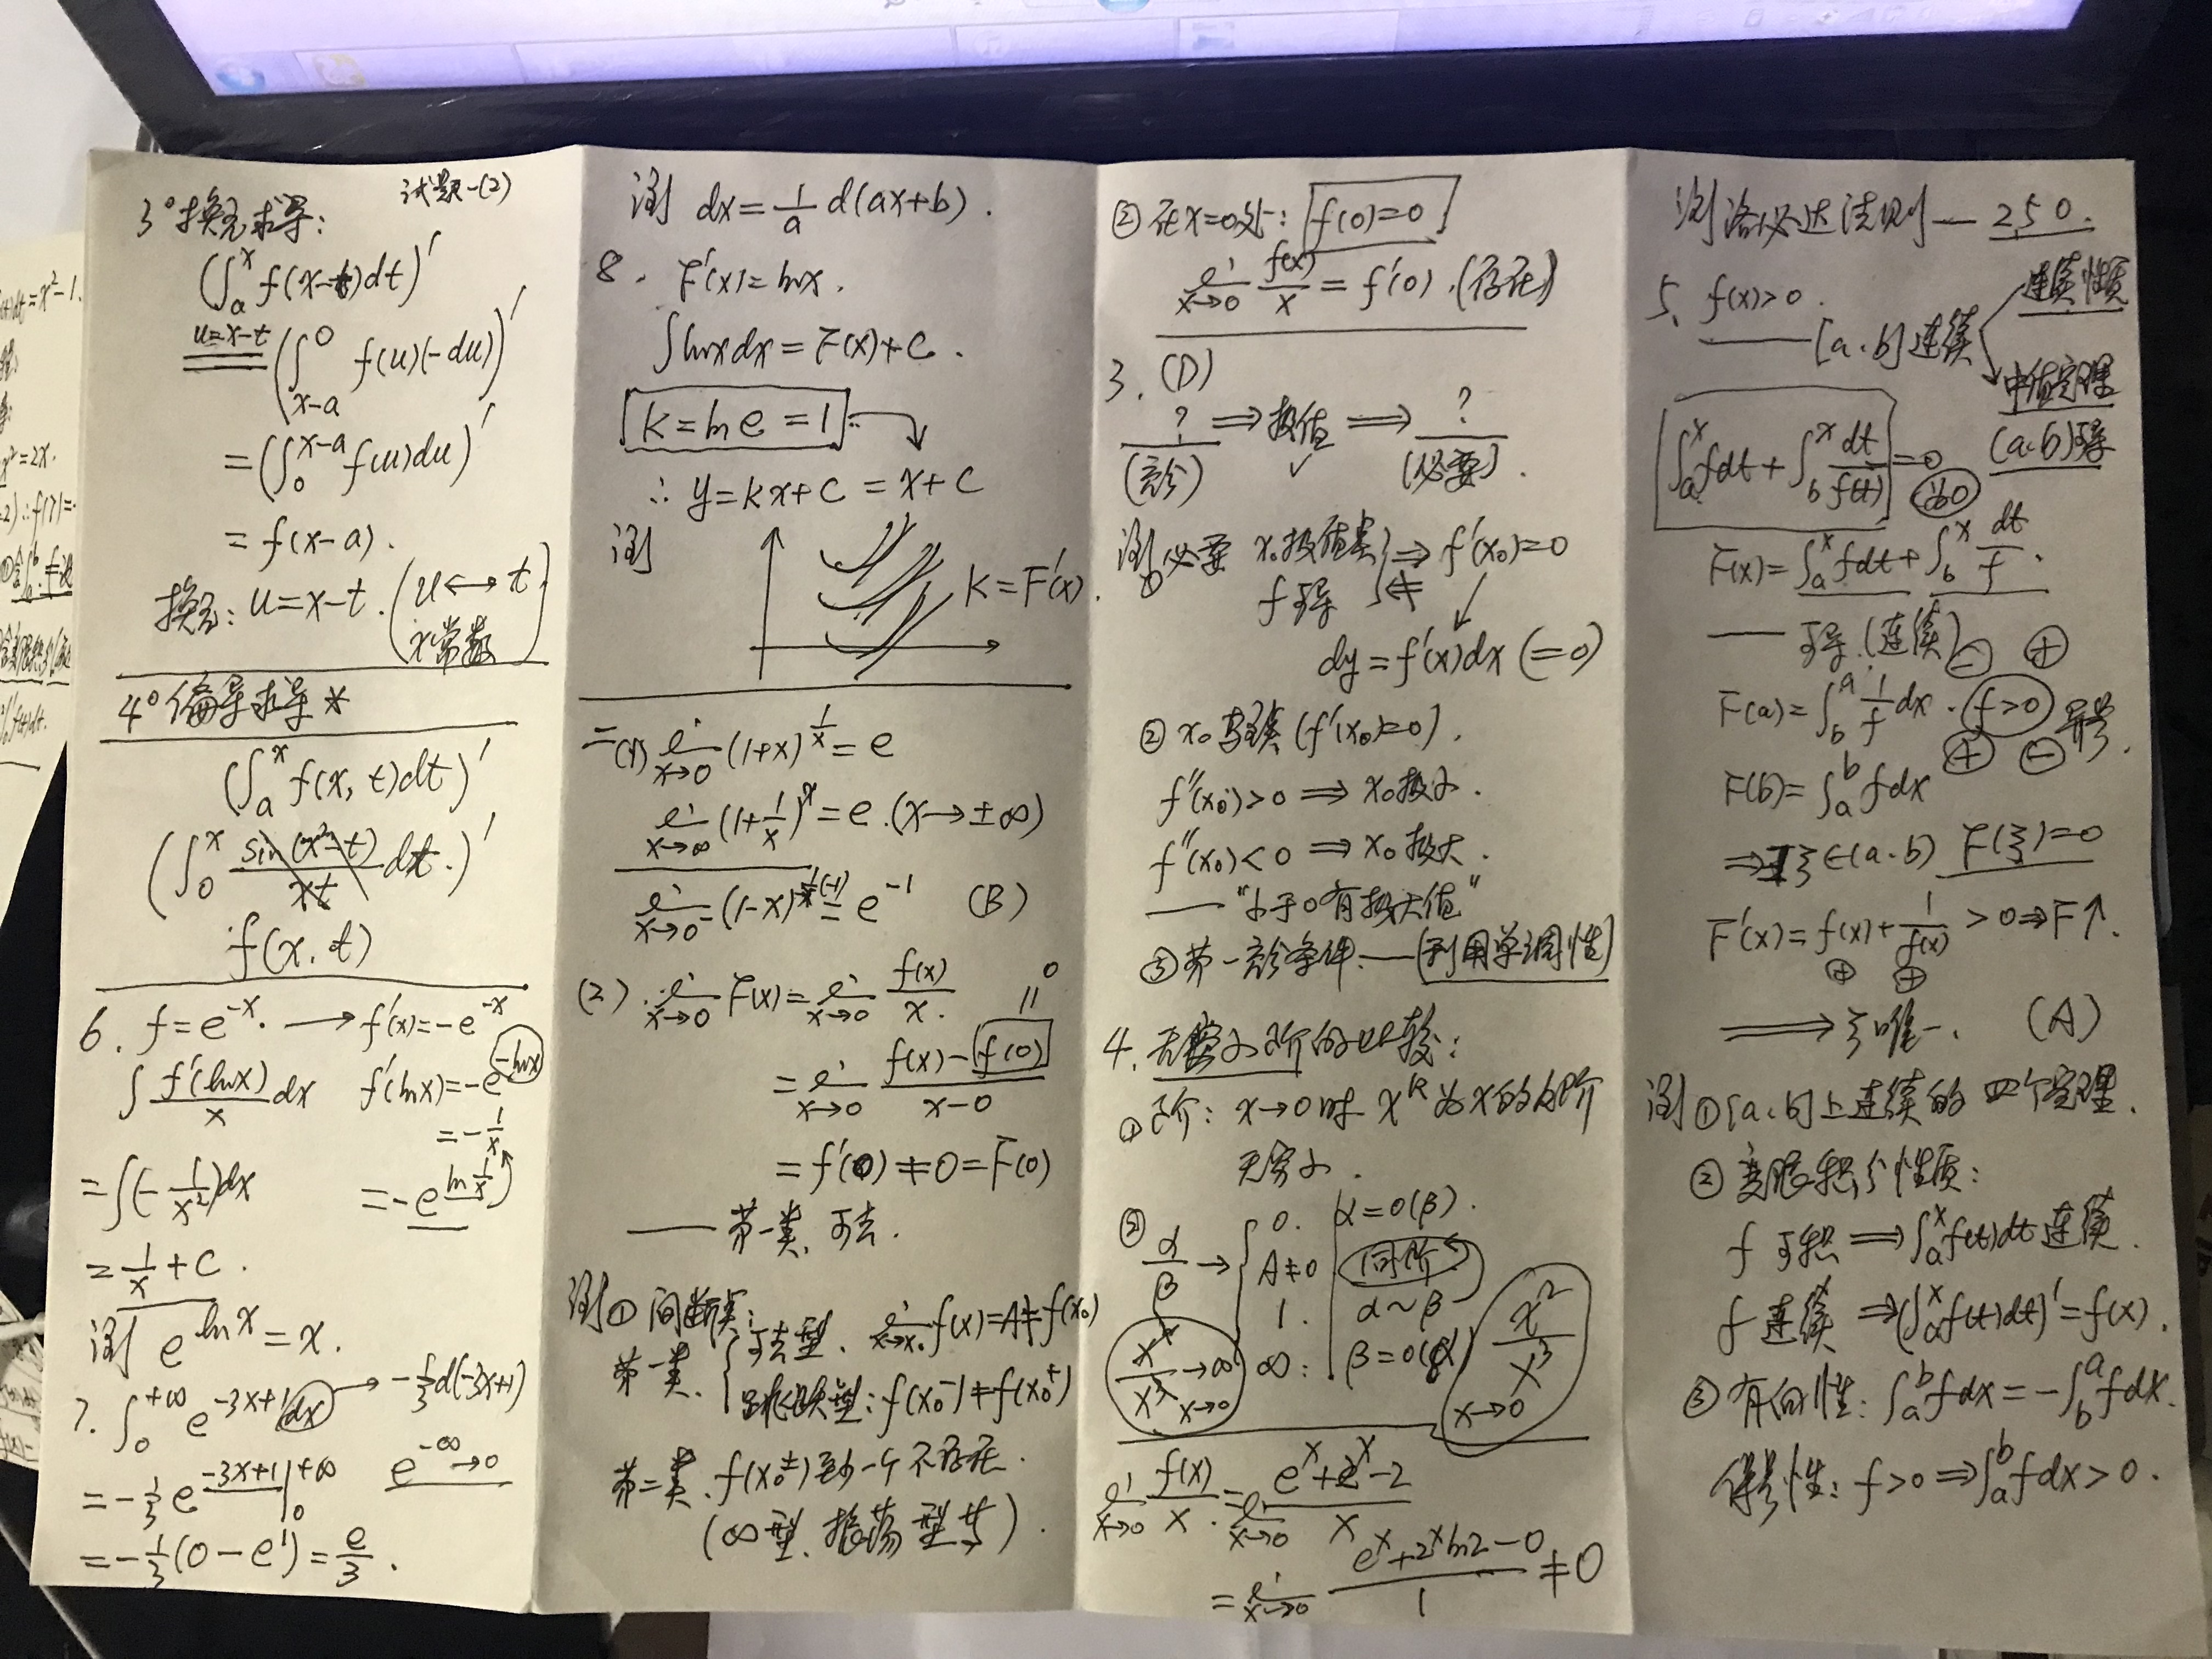 试题-(2)
3° 换元求导:
(∫_a^x f(x-t)dt)'
u=x-t (∫_{x-a}^0 f(u)(-du))'
= (∫_0^{x-a} f(u)du)'
= f(x-a).
换元: u=x-t. (u↔t
x常数)
4° 偏导求导*
(∫_a^x f(x, t)dt)'
(∫_0^x sin(x²-t)/xt dt.)'
f(x, t)
6. f=e^{-x}. → f'(x)=-e^{-x}
∫ f'(lnx)/x dx f'(lnx)=-e^{-lnx}
= -1/x
= ∫(-1/x²)dx = -e^{ln 1/x}
= 1/x + C.
e^{lnx} = x.
7. ∫_0^{+∞} e^{-3x+1} dx → -1/3 d(-3x+1)
= -1/3 e^{-3x+1} |_0^{+∞} e^{-∞}→0
= -1/3 (0-e^1) = e/3.
dx = 1/a d(ax+b).
8. F'(x)=lnx.
∫lnxdx = F(x)+C.
k = ln e = 1
∴ y=kx+C = x+C
K=F'(x).
二(1) lim_{x→0} (1+x)^{1/x} = e
lim_{x→∞} (1+1/x)^x = e. (x→±∞)
lim_{x→0} (1-x)^{-1/x(-1)} = e^{-1} (B)
(2). lim_{x→0} F(x) = lim_{x→0} f(x)/x. 0
= lim_{x→0} (f(x)-f(0))/(x-0)
= f'(0) ≠ 0 = F(0)
—— 第一类, 可去.
① 间断点:
第一类. { 可去型. lim_{x→x₀} f(x)=A≠f(x₀)
跳跃型: f(x₀⁻)≠f(x₀⁺)
第二类. f(x₀^±)至少一个不存在.
(∞型. 振荡型等).
② 在x=0处: f(0)=0
lim_{x→0} f(x)/x = f'(0). (存在)
3. (D)
? ⇒ 极值 ⇒ ?
✓ (必要).
① 必要 x₀极值点 } ⇒ f'(x₀)=0
f可导
dy = f'(x)dx (=0)
② x₀驻点 (f'(x₀)=0).
f''(x₀)>0 ⇒ x₀极小.
f''(x₀)<0 ⇒ x₀极大.
—— "小于0有极大值"
③ 第一充分条件. —— (利用单调性)
4. 无穷小阶的比较:
① 阶: x→0时 x^k为x的k阶
无穷小.
② α/β → { 0. α=o(β).
A≠0 同阶
1. α~β
∞: β=o(α)
x²/x³ → ∞ x→0
x²/x³ x→0
lim_{x→0} f(x)/x. = lim_{x→0} (e^x+2^x-2)/x
= lim_{x→0} (e^x+2^x ln2-0)/1 ≠0
洛必达法则 — 250.
5. f(x)>0. 连续性质
—— [a.b]连续 中值定理
(a.b)可导
∫_a^x fdt + ∫_b^x dt/f(t) = 0
F(x) = ∫_a^x fdt + ∫_b^x dt/f.
—— 可导.(连续) ⊖ ⊕
F(a) = ∫_b^a 1/f dx. (f>0) 异号.
F(b) = ∫_a^b fdx ⊕ ⊖
⇒ ∃ξ∈(a.b) F(ξ)=0
F'(x) = f(x) + 1/f(x) > 0 ⇒ F↑.
⊕ ⊕
⟹ ξ唯一. (A)
① [a.b]上连续的四个定理.
② 变限积分性质:
f 可积 ⇒ ∫_a^x f(t)dt 连续.
f 连续 ⇒ (∫_a^x f(t)dt)' = f(x).
③ 有向性: ∫_a^b fdx = -∫_b^a fdx.
保号性: f>0 ⇒ ∫_a^b fdx > 0.